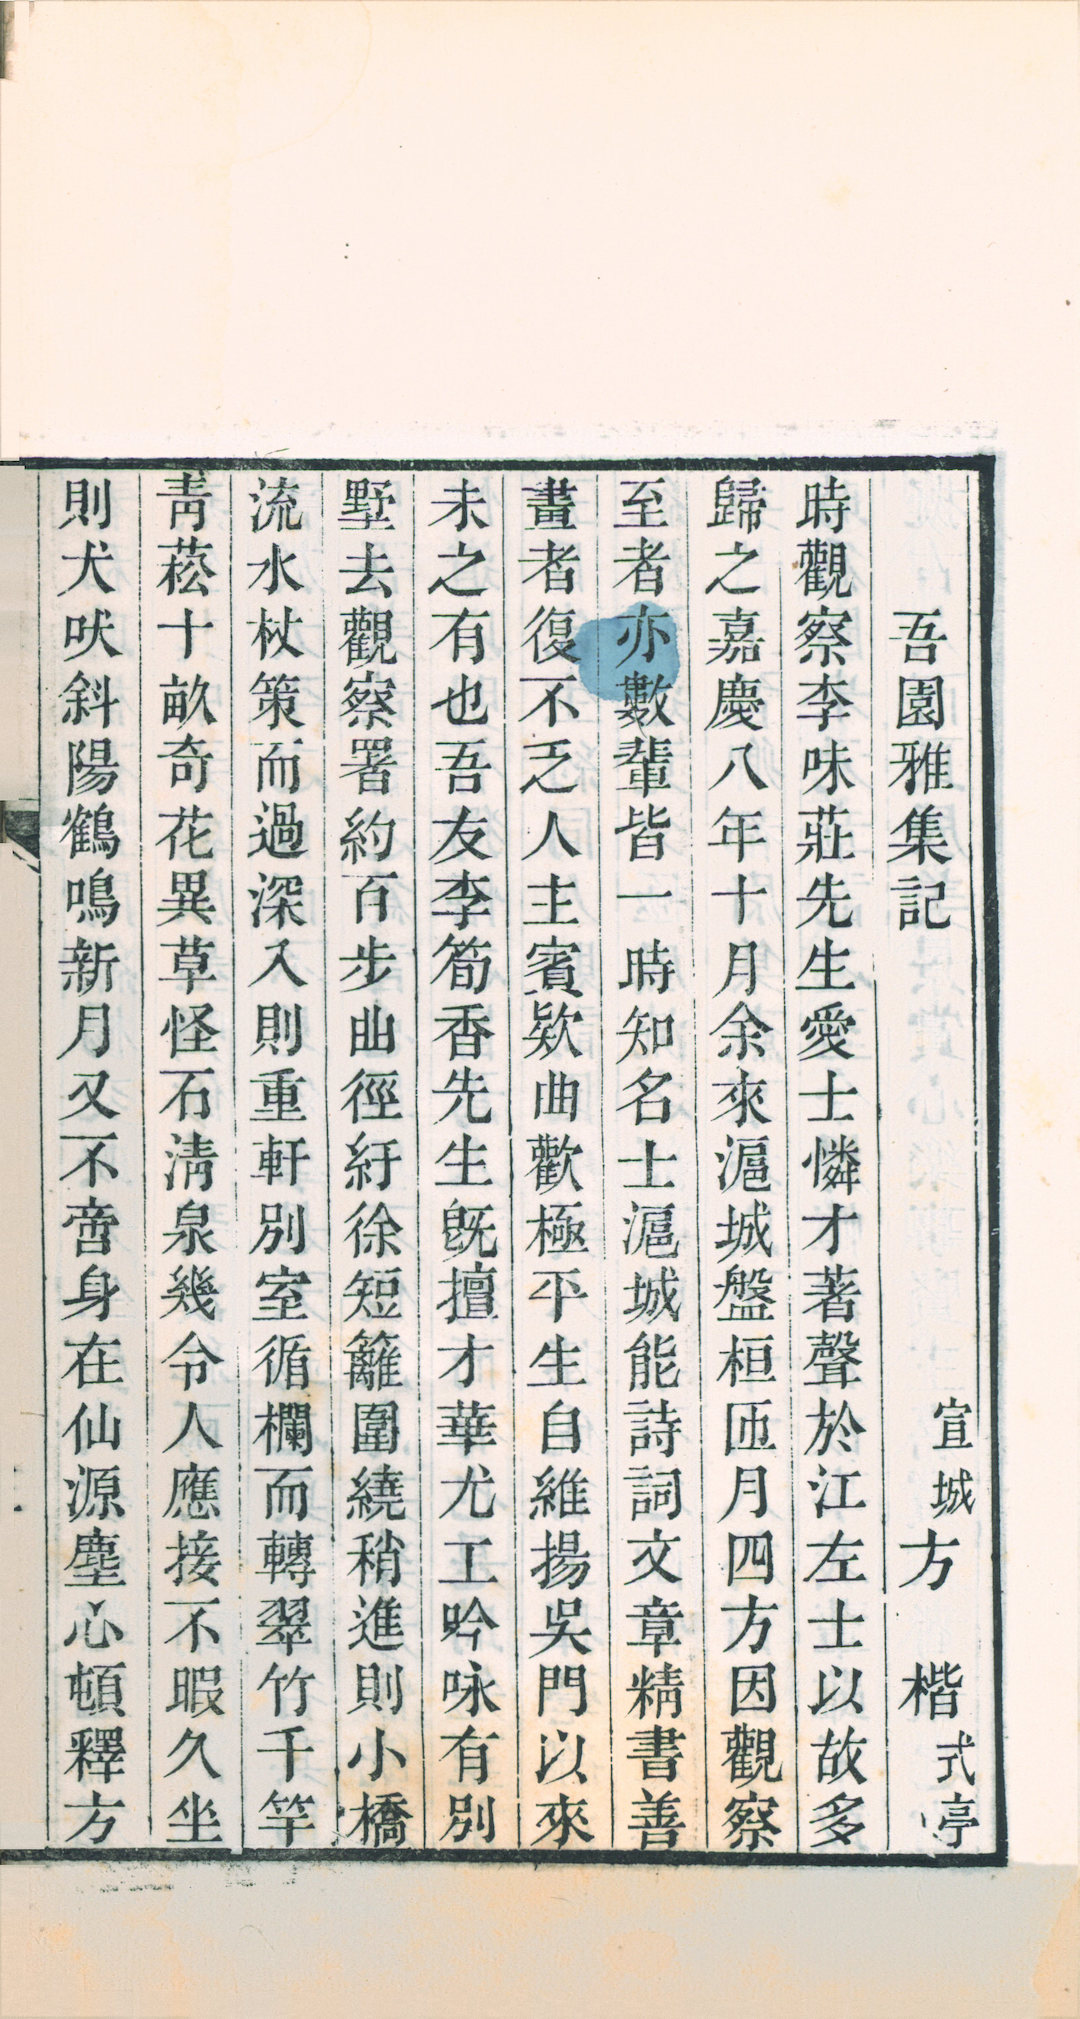 吾園雅集記　宣城方　楷式亭
時觀察李味莊先生愛士憐才著聲於江左士以故多
歸之嘉慶八年十月余來滬城盤桓匝月四方因觀察
至者亦數輩皆一時知名士滬城能詩詞文章精書善
畫者復不乏人主賓欵曲歡極平生自維揚吳門以來
未之有也吾友李筍香先生旣擅才華尤工吟咏有別
墅去觀察署約百步曲徑紆徐短籬圍繞稍進則小橋
流水杖策而過深入則重軒別室循欄而轉翠竹千竿
靑菘十畝奇花異草怪石淸泉幾令人應接不暇久坐
則犬吠斜陽鶴鳴新月又不啻身在仙源塵心頓釋方